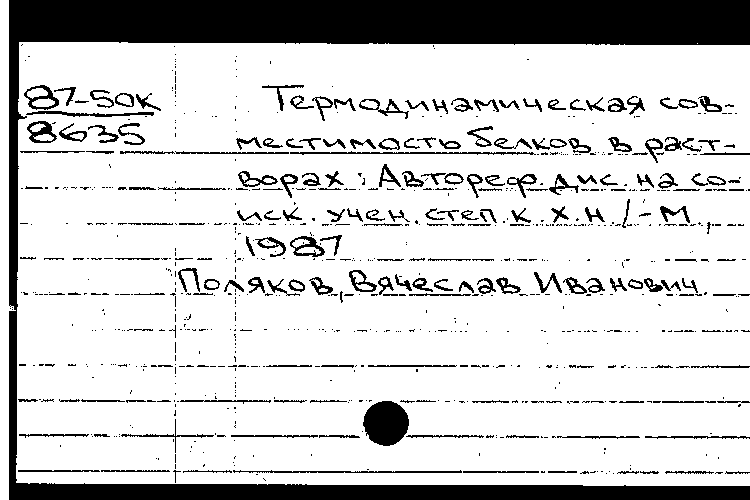 87-50К
8635
Термодинамическая сов-
местимость белков в раст-
ворах : Автореф. дис. на со-
иск. учен. степ. к. х. н. /-М.,
1987
Поляков, Вячеслав Иванович.